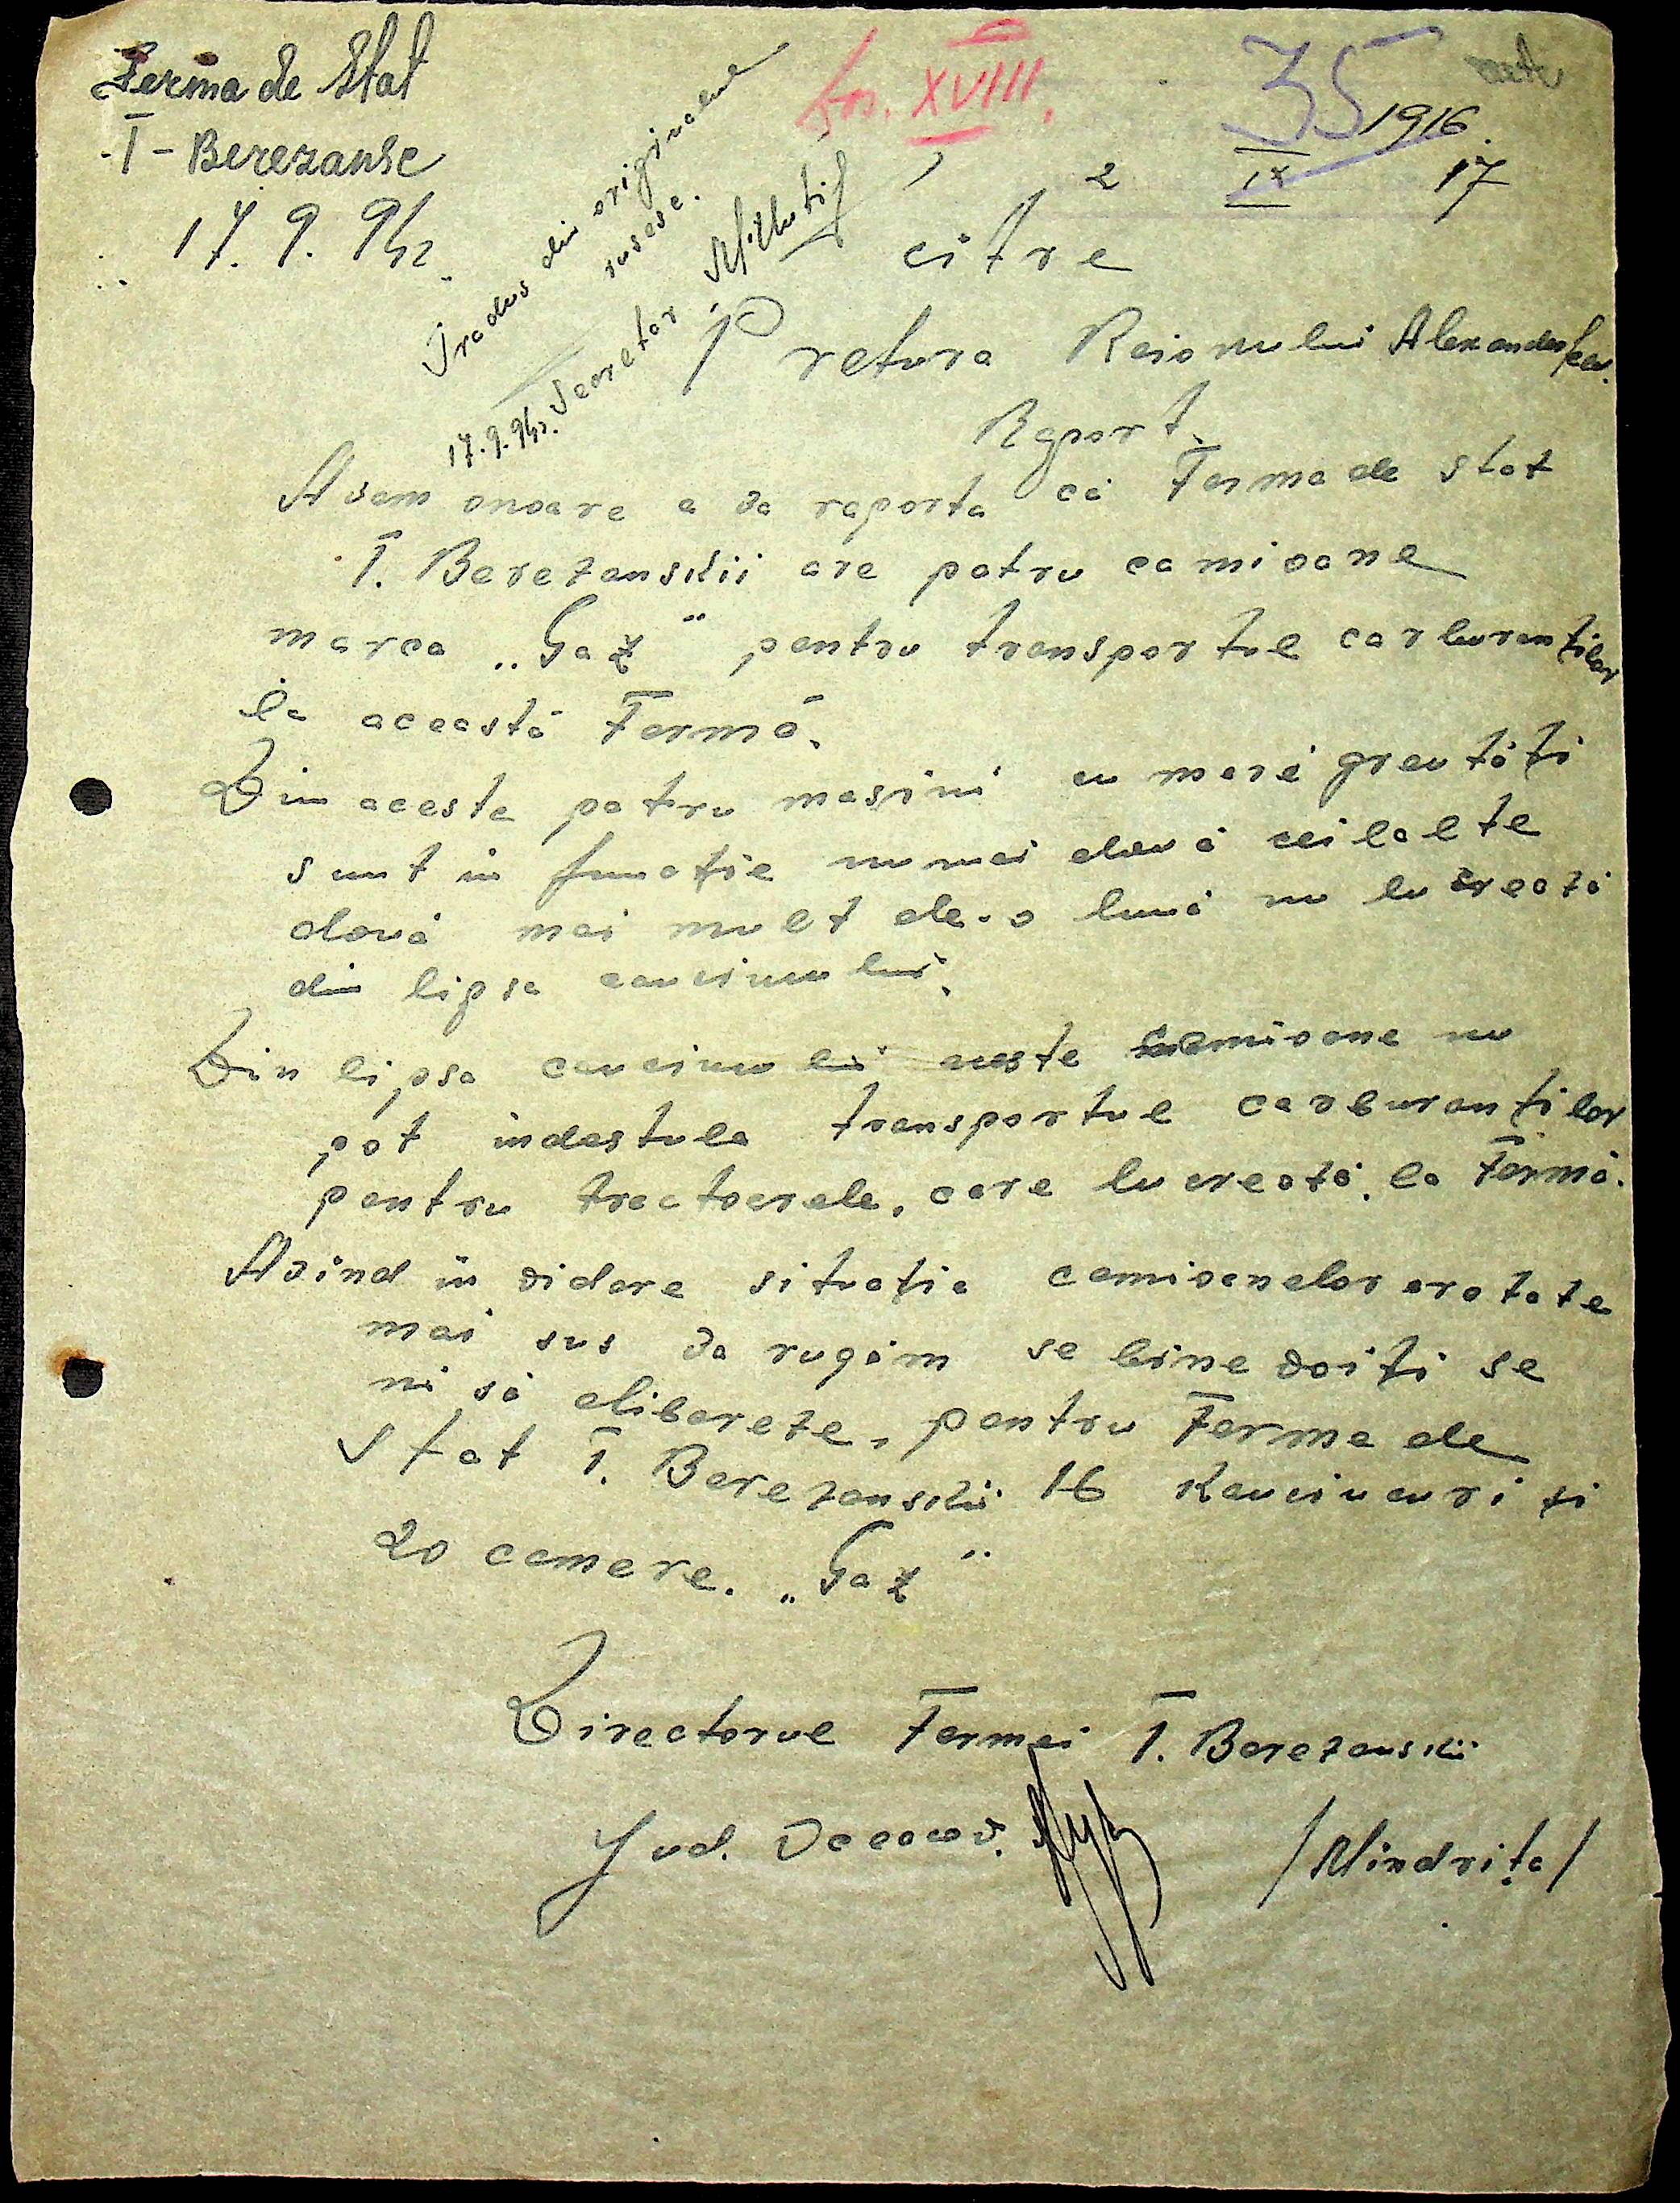 Ferma de Stat
I - Berezansc
17. 9. 942.
Tradus din originalul
rusesc.
Secretar
17.9.942.
Dos. XVIII.
35
1916.
2 IX 17
citre
Pretura Raionului Alexandrfca.
Raport.
Avem onoare a va raporta că Ferma de stat
I. Berezanskii are patru camioane
marca „Gaz" pentru transportul carburanților
la această Fermă.
Din aceste patru mașini cu mare greutăți
sunt in funcție numai două ceilalte
două mai mult de-o lună nu lucrează
din lipsa cauciucului.
Din lipsa cauciucului aceste camioane nu
pot indestula transportul carburanților
pentru tractoarele, care lucrează la Fermă.
Avind in videre situația camioanelor aratate
mai sus va rugăm se bine voiți se
ni să elibereze, pentru Ferma de
Stat I. Berezanskii 16 Kauciucuri și
20 camere. „Gaz"
Directorul Fermei I. Berezanskii
Jud. Oceacov.
/Mindrița/